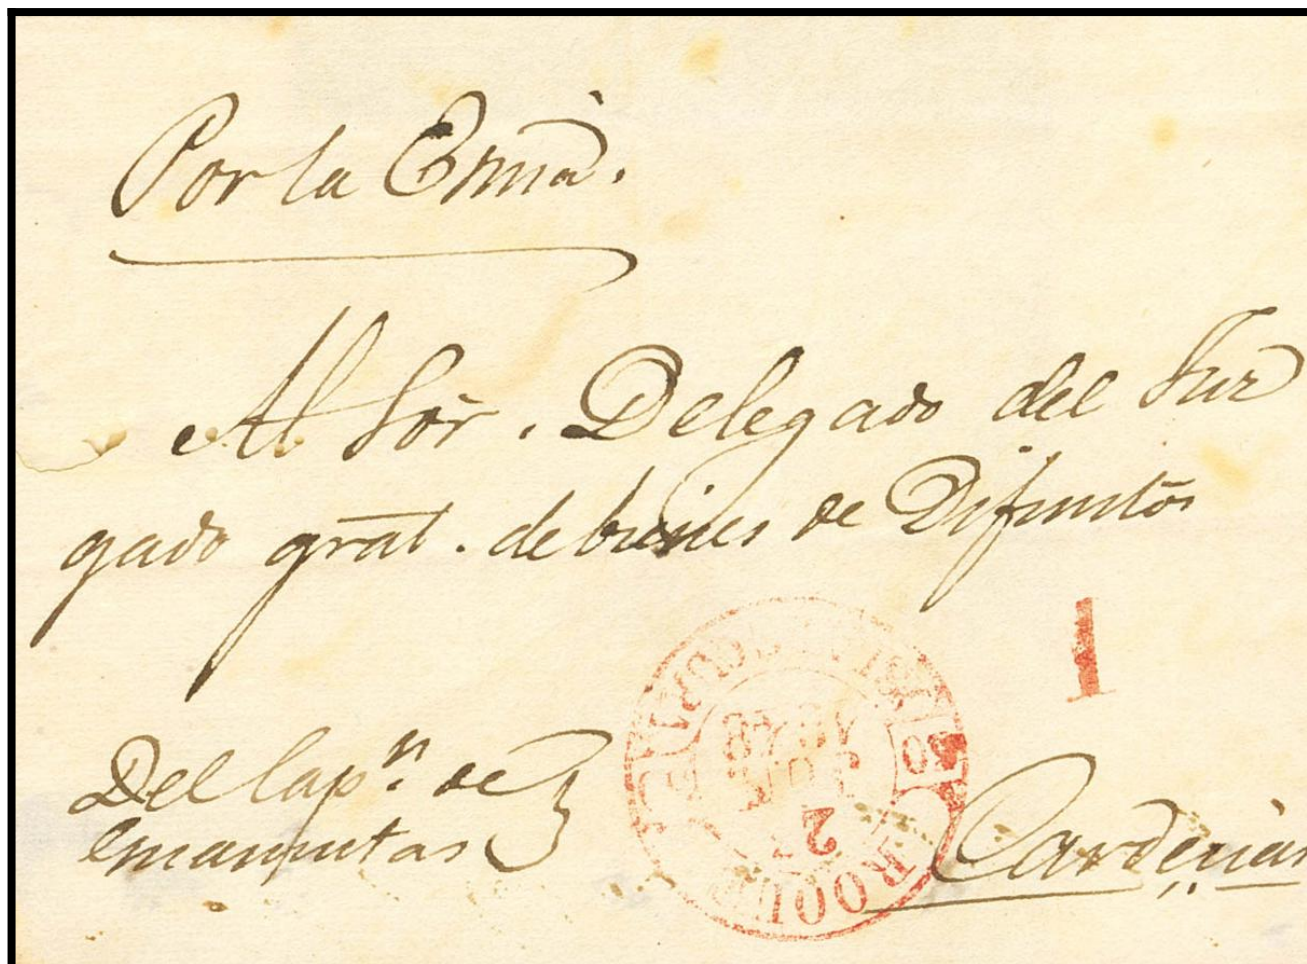 Por la
Al Sor. Delegado del Juz
gado gral. de bienes de Difuntos
1
Del Capn. de
Cardenas